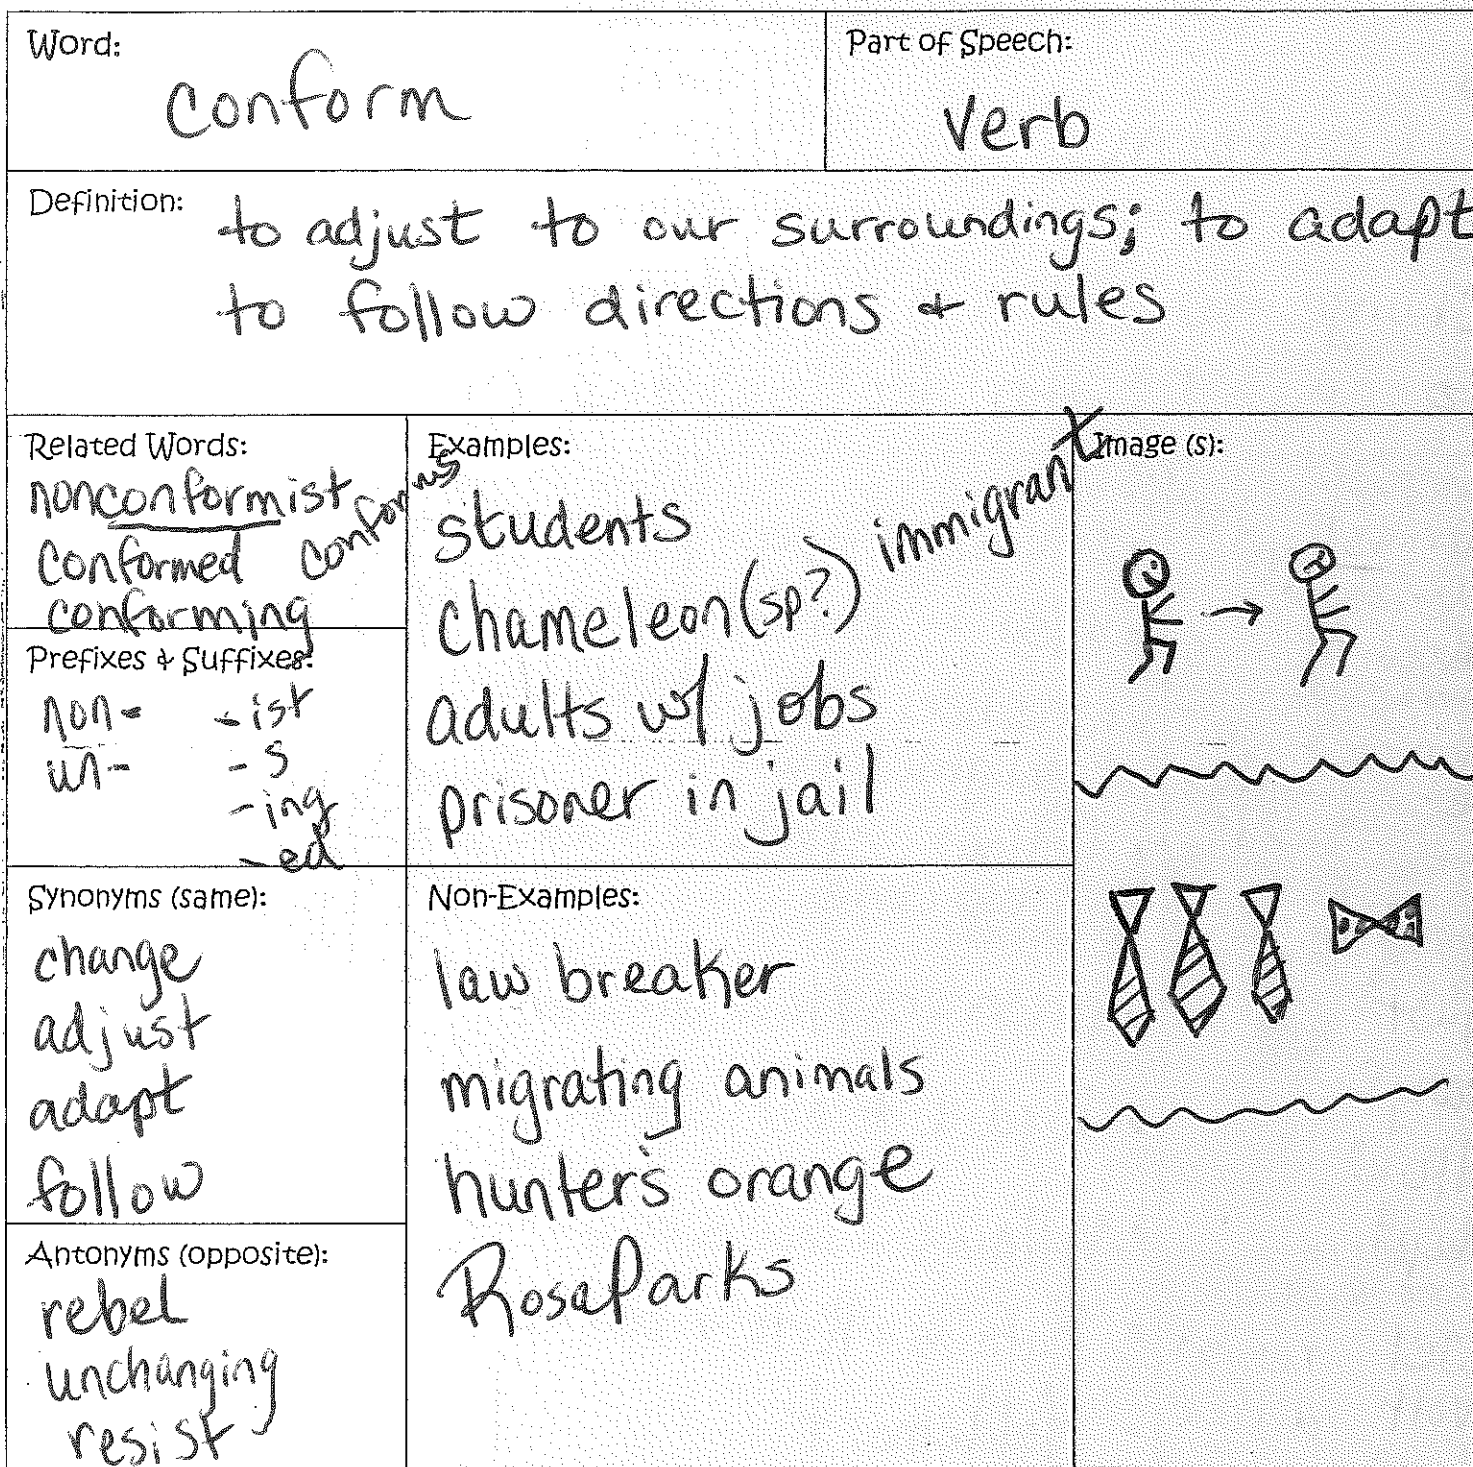 Word:
conform
Part of Speech:
Verb
Definition: to adjust to our surroundings; to adapt
to follow directions + rules
Related Words:
nonconformist
conformed conforms
conforming
Prefixes & Suffixes:
non- -ist
un- -s
-ing
-ed
Synonyms (same):
change
adjust
adapt
follow
Antonyms (opposite):
rebel
unchanging
resist
Examples:
students
chameleon (sp?) immigrant
adults w/ jobs
prisoner in jail
Non-Examples:
law breaker
migrating animals
hunter's orange
Rosa Parks
Image (s):